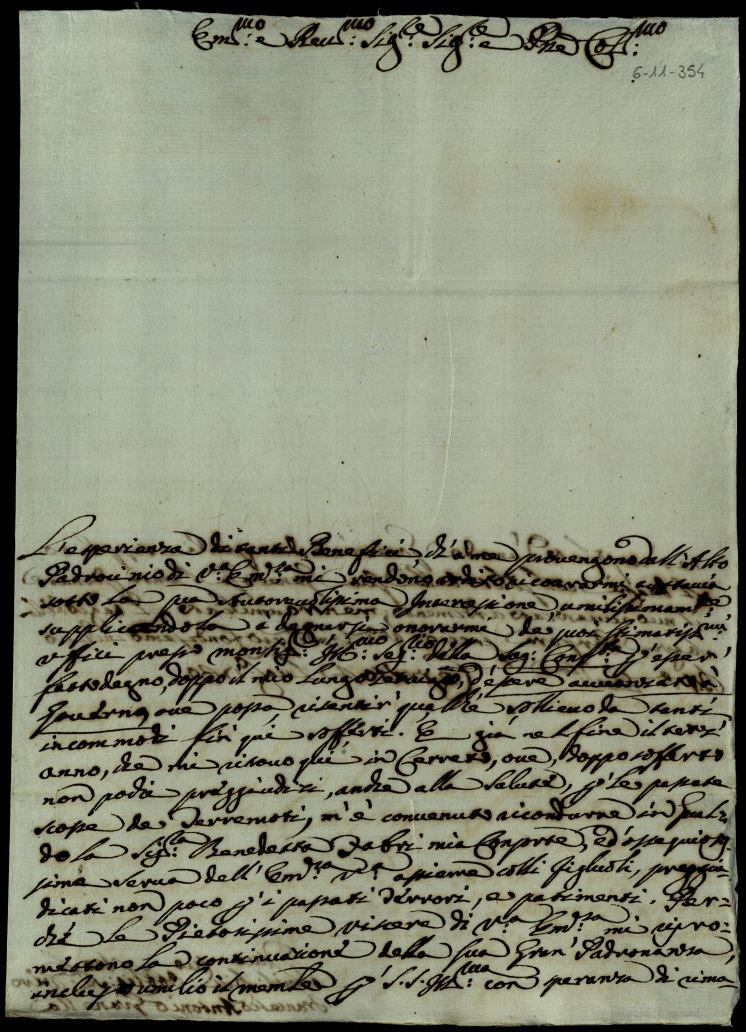 Em.mo e Rev.mo Sig.re Sig.re e Pne Col.mo
6-11-354
L'esperienza di tanti Beneficii ch'a me provengono dall'Alto
Padrocinio di V.ra Em.za mi rendono ardito ricovrarmi tuttavia
sotto la più Autorevolissima Intercessione umilissimam.te
supplicandola a degnarsi onorarmi de' suoi stimatiss.mi
uffici presso monsig.r Ill.mo Seg.rio della Seg.: Cons.ta p' esser'
fatto degno, doppo il mio lungo servizio, d'essere avvanzato in
Governo, ove possa risentir' qualche sollievo da tanti
incommodi fin' qui sofferti. E già nel fine il terz'
anno, che mi ritrovo qui in Cerreto, ove, doppo sofferto
non pochi preggiudizi, anche alla salute, p' le passate
scosse de Terremoti, m'è convenuto ricondurne in Gual-
do la Sig.ra Benedetta Fabri mia Consorte, ed ossequiosis-
sima serva dell' Em.za V.ra assieme colli figliuoli, preggiu-
dicati non poco p' i passati d'errori, e patimenti. Per-
che le Pietosissime viscere di V.ra Em.za mi ripro-
mettono la continuazione della sua Gran' Padronanza,
inchiudo umilio il memle p' S. S. Ill.ma con speranza di rima-